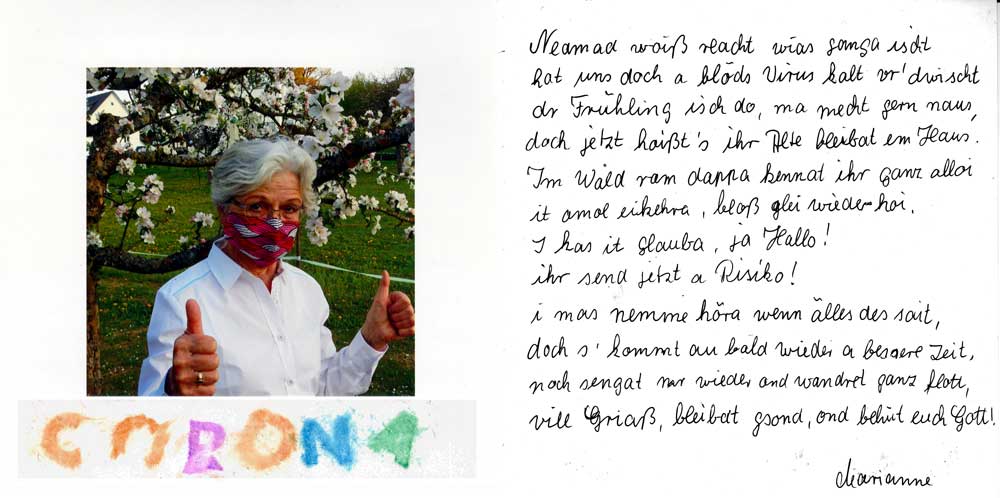 CORONA
Neamad woiß reacht wias ganga ischt
hat uns doch a blöds Virus halt vr'dwischt
dr Frühling isch do, ma mecht gern naus,
doch jetzt haißt's ihr Alte bleibat em Haus.
Im Wald rom dappa kennat ihr ganz alloi
it amol eikehra, bloß glei wieder hoi.
I kas it glauba, ja Hallo!
ihr send jetzt a Risiko!
i mas nemme höra wenn älles des sait,
doch s' kommt au bald wieder a bessere Zeit,
noch sengat mr wieder ond wandret ganz flott,
vill Griaß, bleibat gsond, ond behüt euch Gott!
Marianne